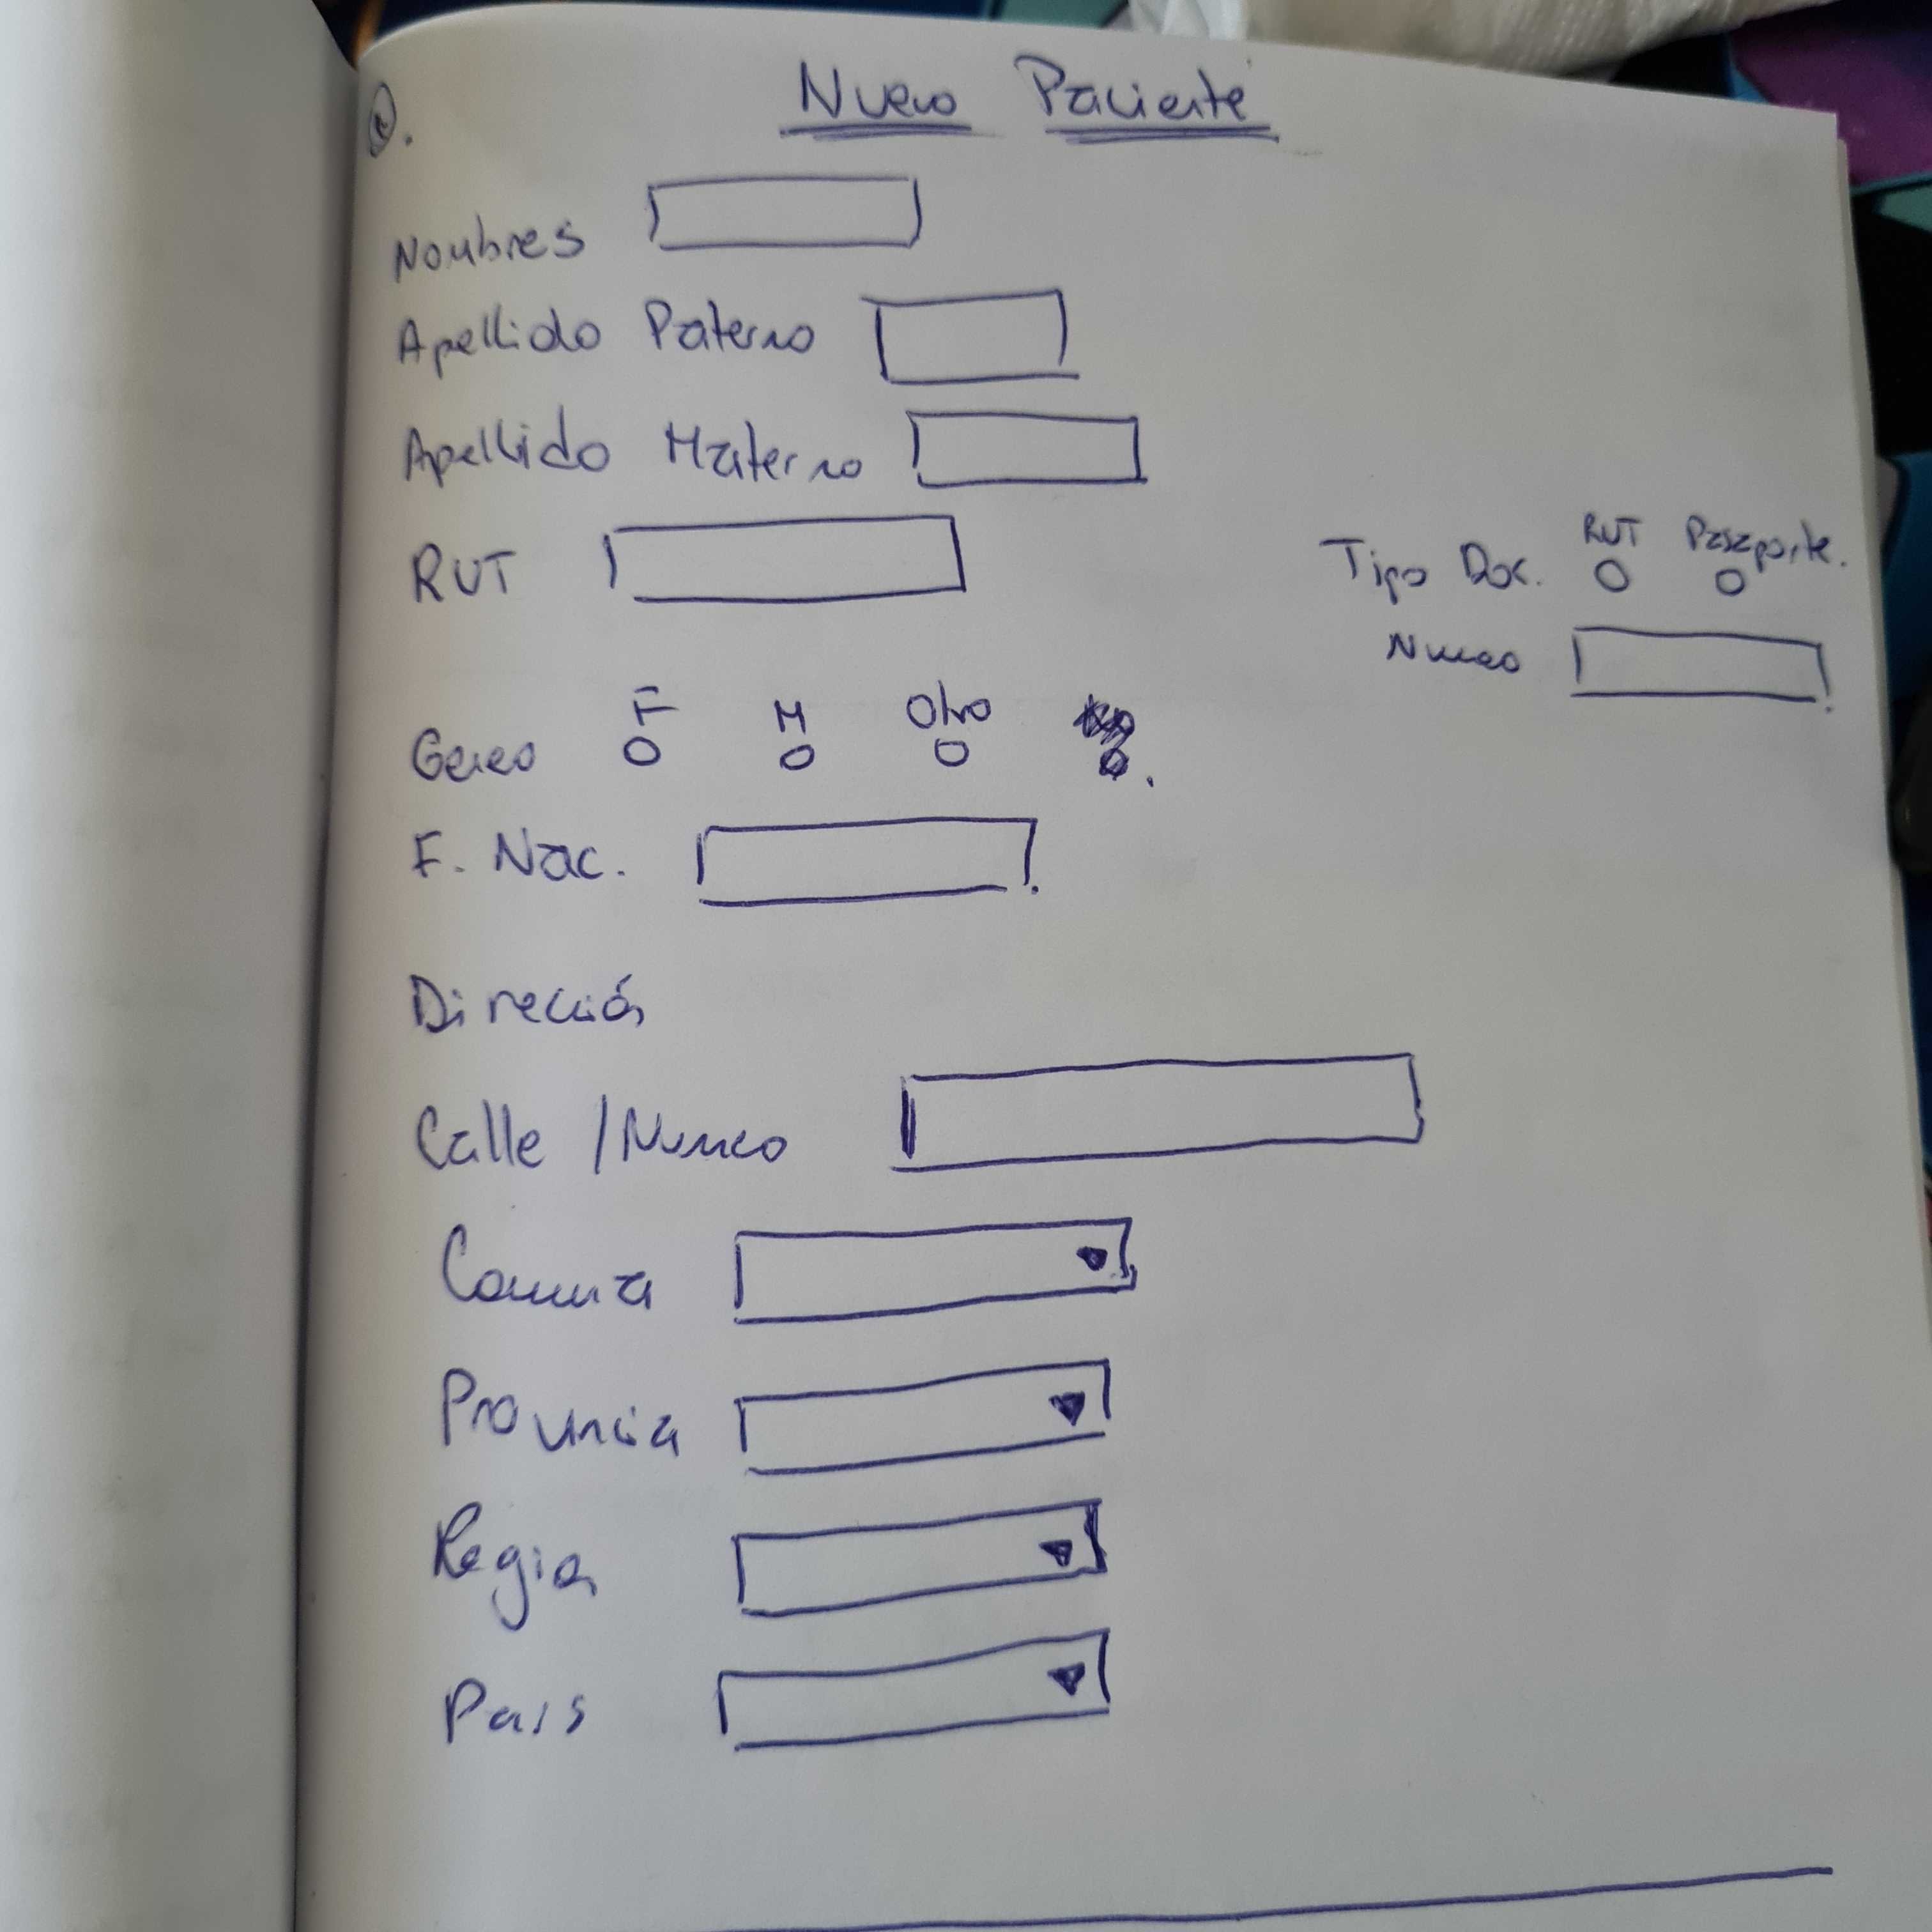 Nuevo Paciente
Nombres
Apellido Paterno
Apellido Materno
RUT
Tipo Doc. RUT Pasaporte.
Numero
Genero F M Otro
F. Nac.
Dirección
Calle / Numero
Comuna
Provincia
Region
Pais